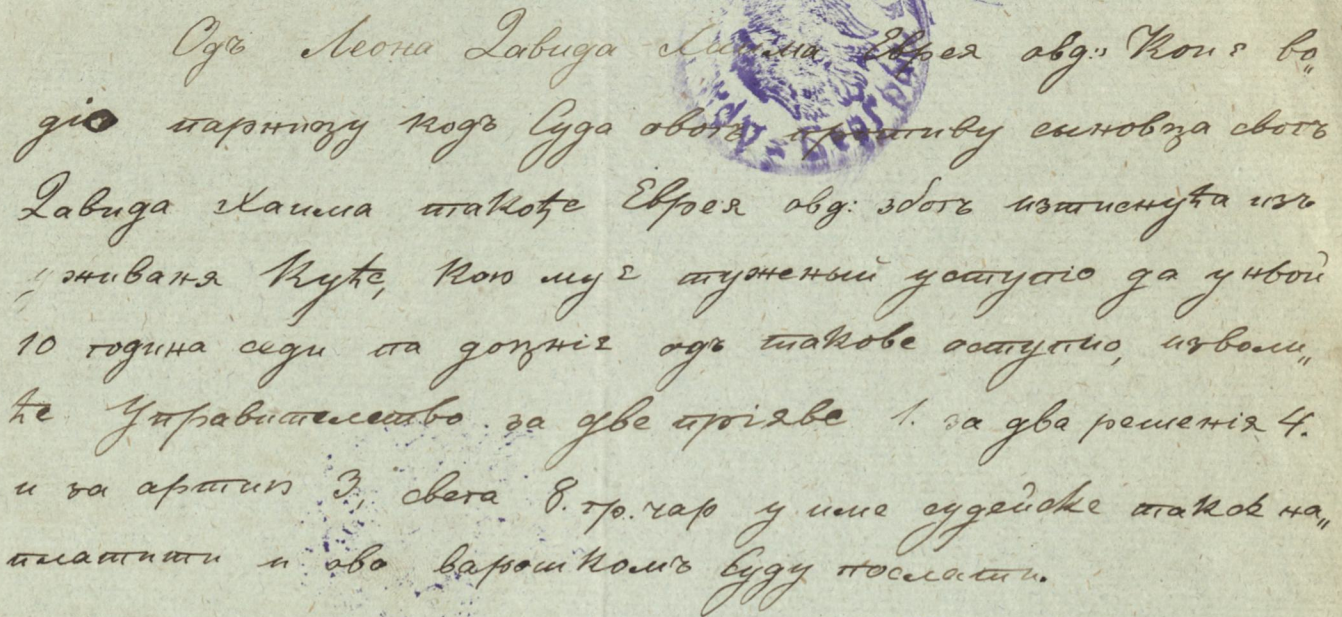 Одъ Леона Давида Хаима Еврея овд: кои є во„
діо парницу кодъ Суда овогъ противу сыновца свогъ
Давида Хаима такође Еврея овд: збогъ изтиснућа изъ
уживаня куће, кою му є туженый уступіо да у ньой
10 година седи па доцніє одъ такове оступио, изволи„
ће Управителство за две пріяве 1. за два решенія 4.
и за артию 3, свега 8. гр. чар у име судейске таксе на„
платити и ово варошкомъ Суду послати.